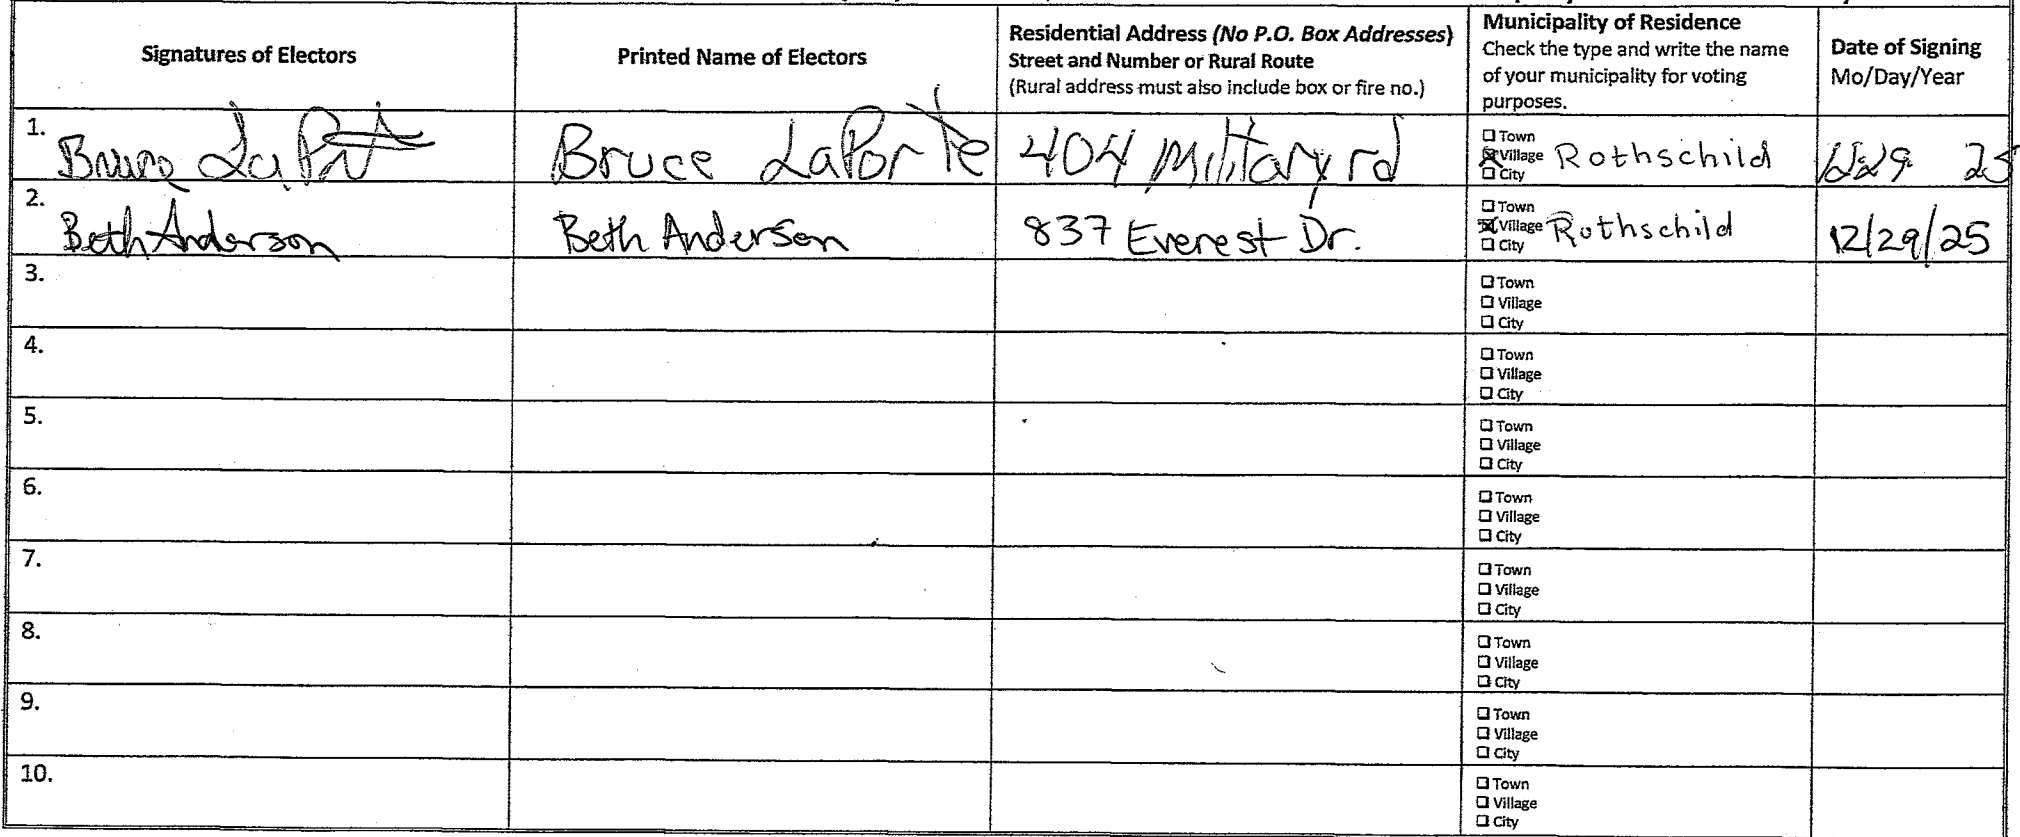 Signatures of Electors
Printed Name of Electors
Residential Address (No P.O. Box Addresses)
Street and Number or Rural Route
(Rural address must also include box or fire no.)
Municipality of Residence
Check the type and write the name
of your municipality for voting
purposes.
Date of Signing
Mo/Day/Year
1.
Bruce LaPorte
Bruce LaPorte
404 Military rd
☐ Town
☒ Village Rothschild
☐ City
12 29 25
2.
Beth Anderson
Beth Anderson
837 Everest Dr.
☐ Town
☒ Village Rothschild
☐ City
12/29/25
3.
☐ Town
☐ Village
☐ City
4.
☐ Town
☐ Village
☐ City
5.
☐ Town
☐ Village
☐ City
6.
☐ Town
☐ Village
☐ City
7.
☐ Town
☐ Village
☐ City
8.
☐ Town
☐ Village
☐ City
9.
☐ Town
☐ Village
☐ City
10.
☐ Town
☐ Village
☐ City